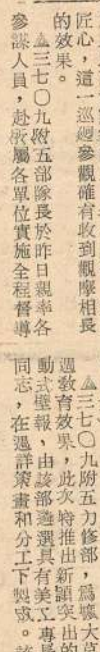 匠心，這一巡迴參觀確有收到觀摩相長
的效果。
△三七〇九附五部隊長於昨日親率各
參謀人員，赴所屬各單位實施全程督導
△三七〇九附五力修部，為擴大
週教育效果，此次特推出新穎突出的
動式壁報，由該部遴選具有美工專
同志，在週詳策畫和分工下製成。